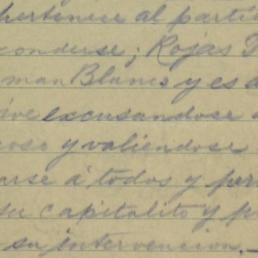 pertenece al parti
conderse; Rojas
man Blanco y es a
ive excusandose
oso y valiendose
arse á todos y per
su capitalito y p
su intervencion.